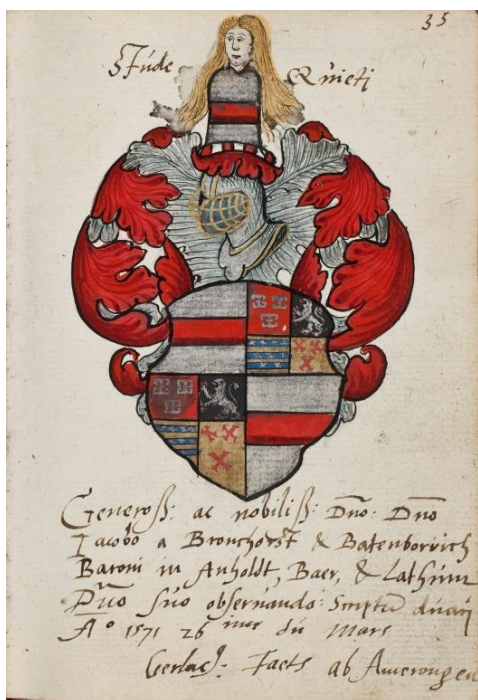 35
Fide Quieti
Generoß: ac nobiliß: Dno: Dno
Jacobo a Bronchorst & Batenborrich
Baroni in Anholdt, Baer, & Lathum
Dno suo obseruando: Scriptu
A° 1571 26 du Mars
Gerlac: Taets ab Amerongen